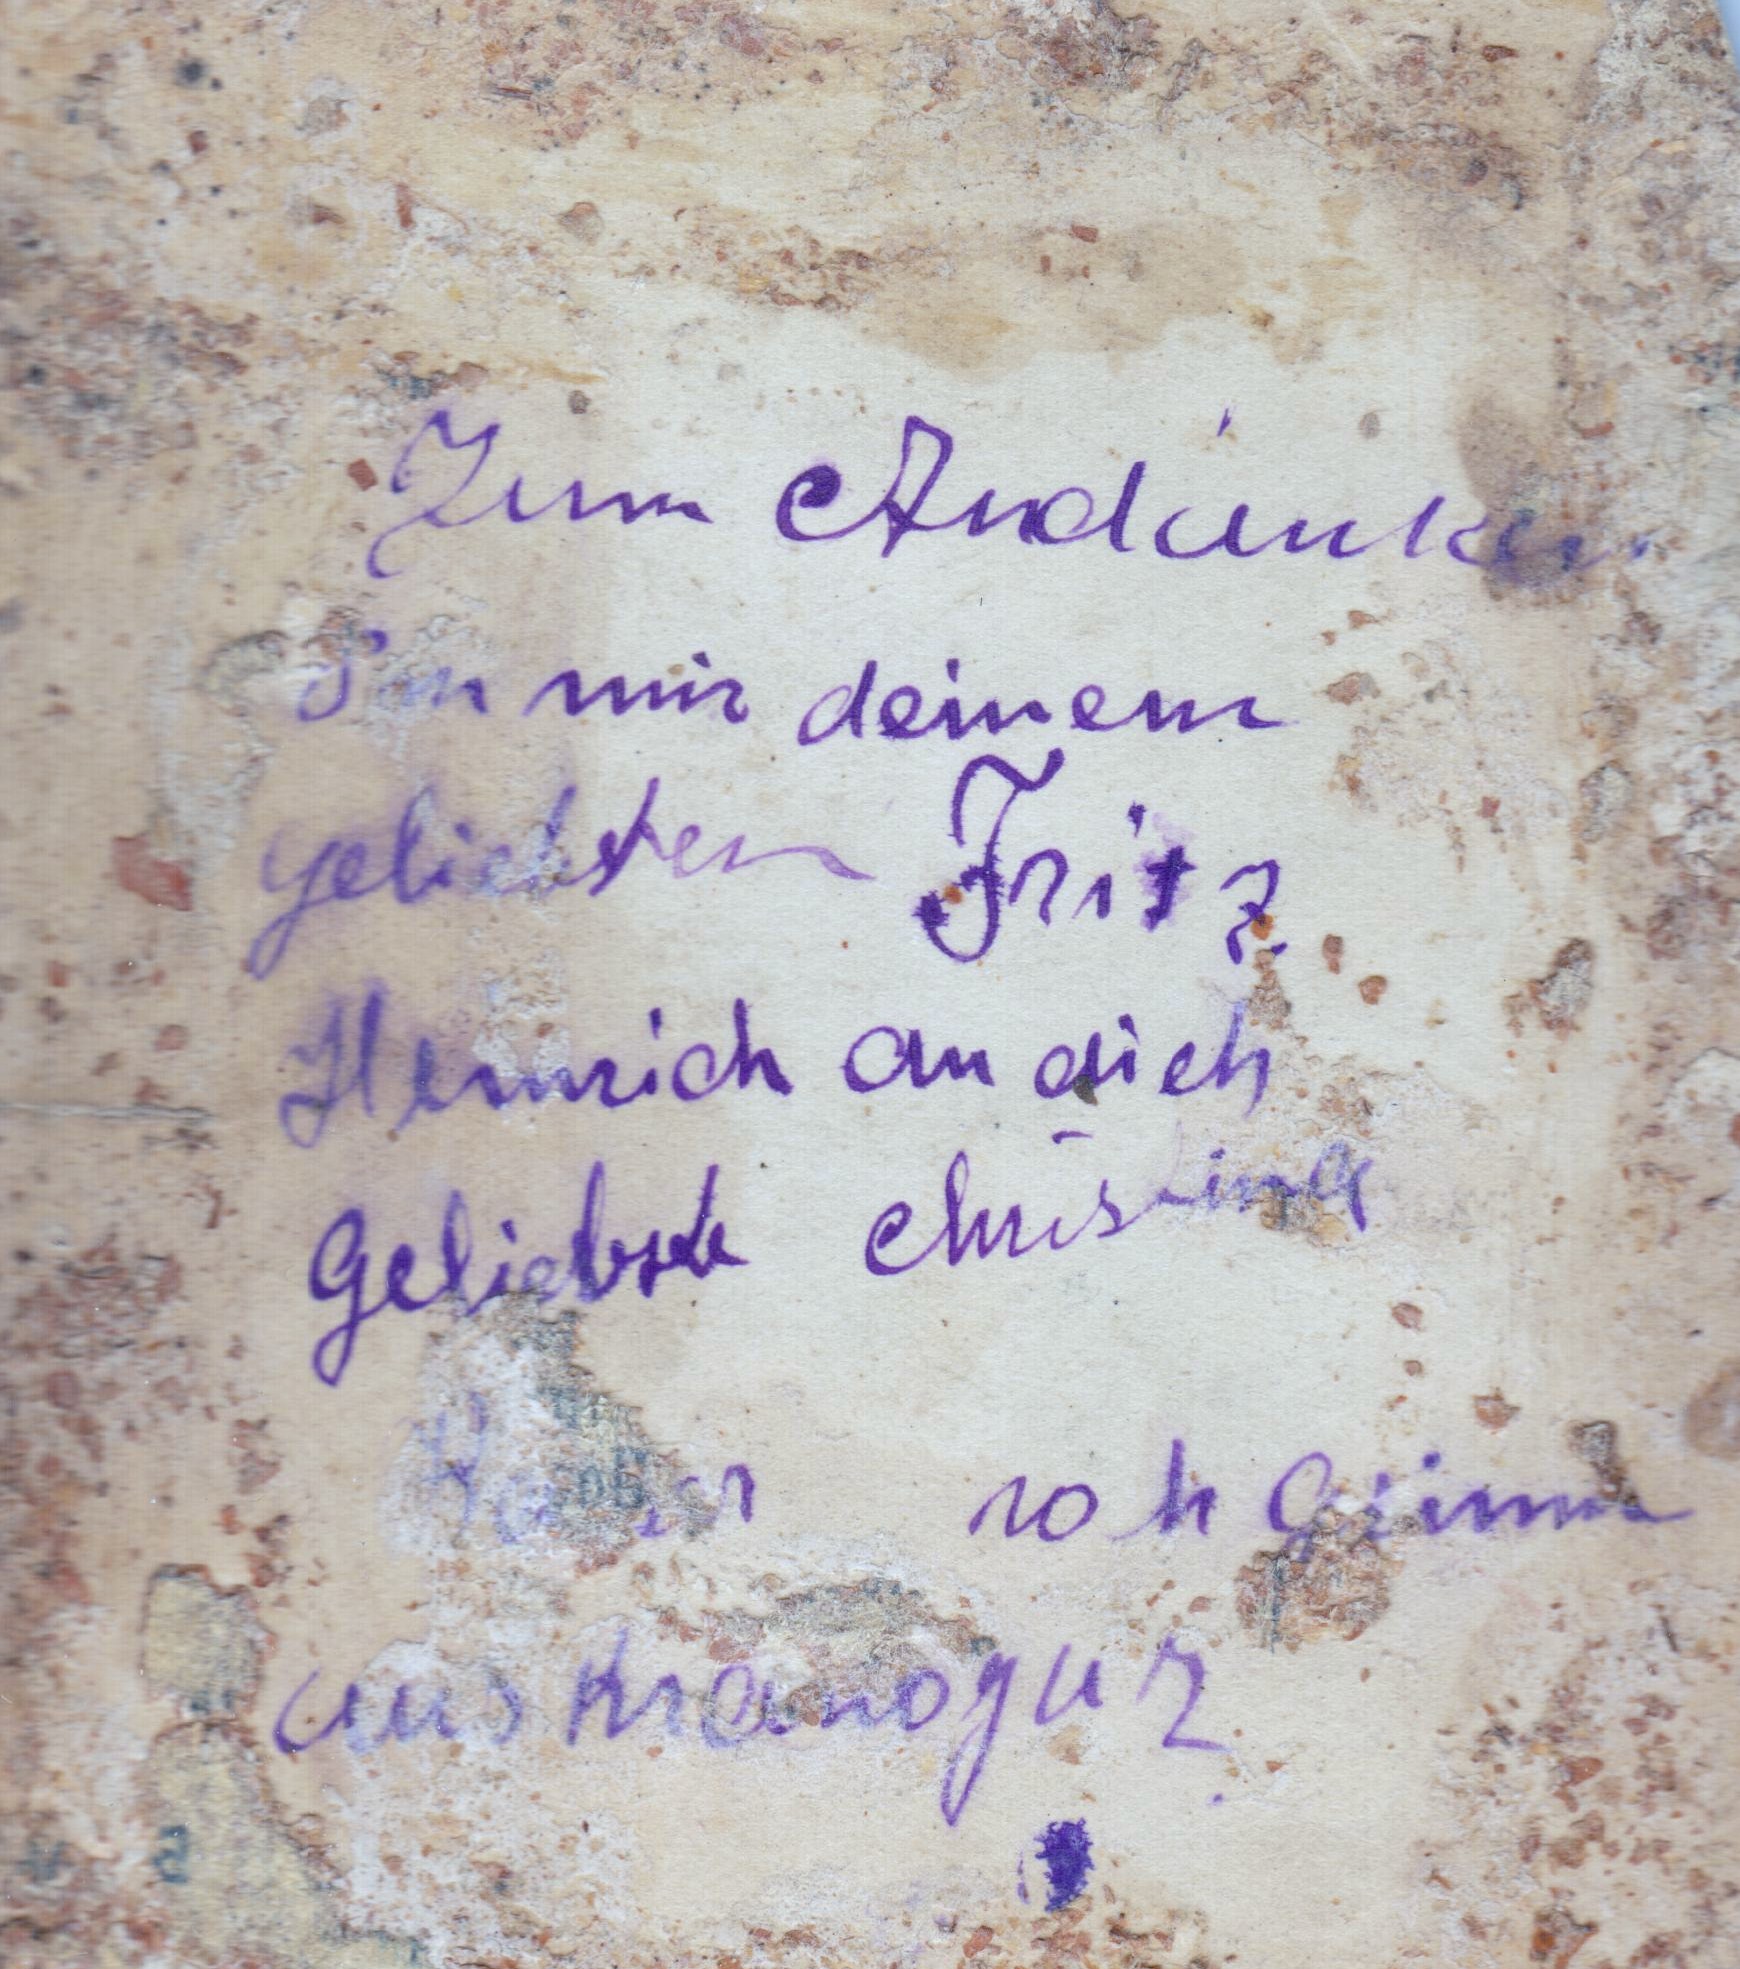 Zum Andänken
Von mir deinem
geliebsten Fritz
Heinrich an dich
Geliebste christina
aus Kranoguz